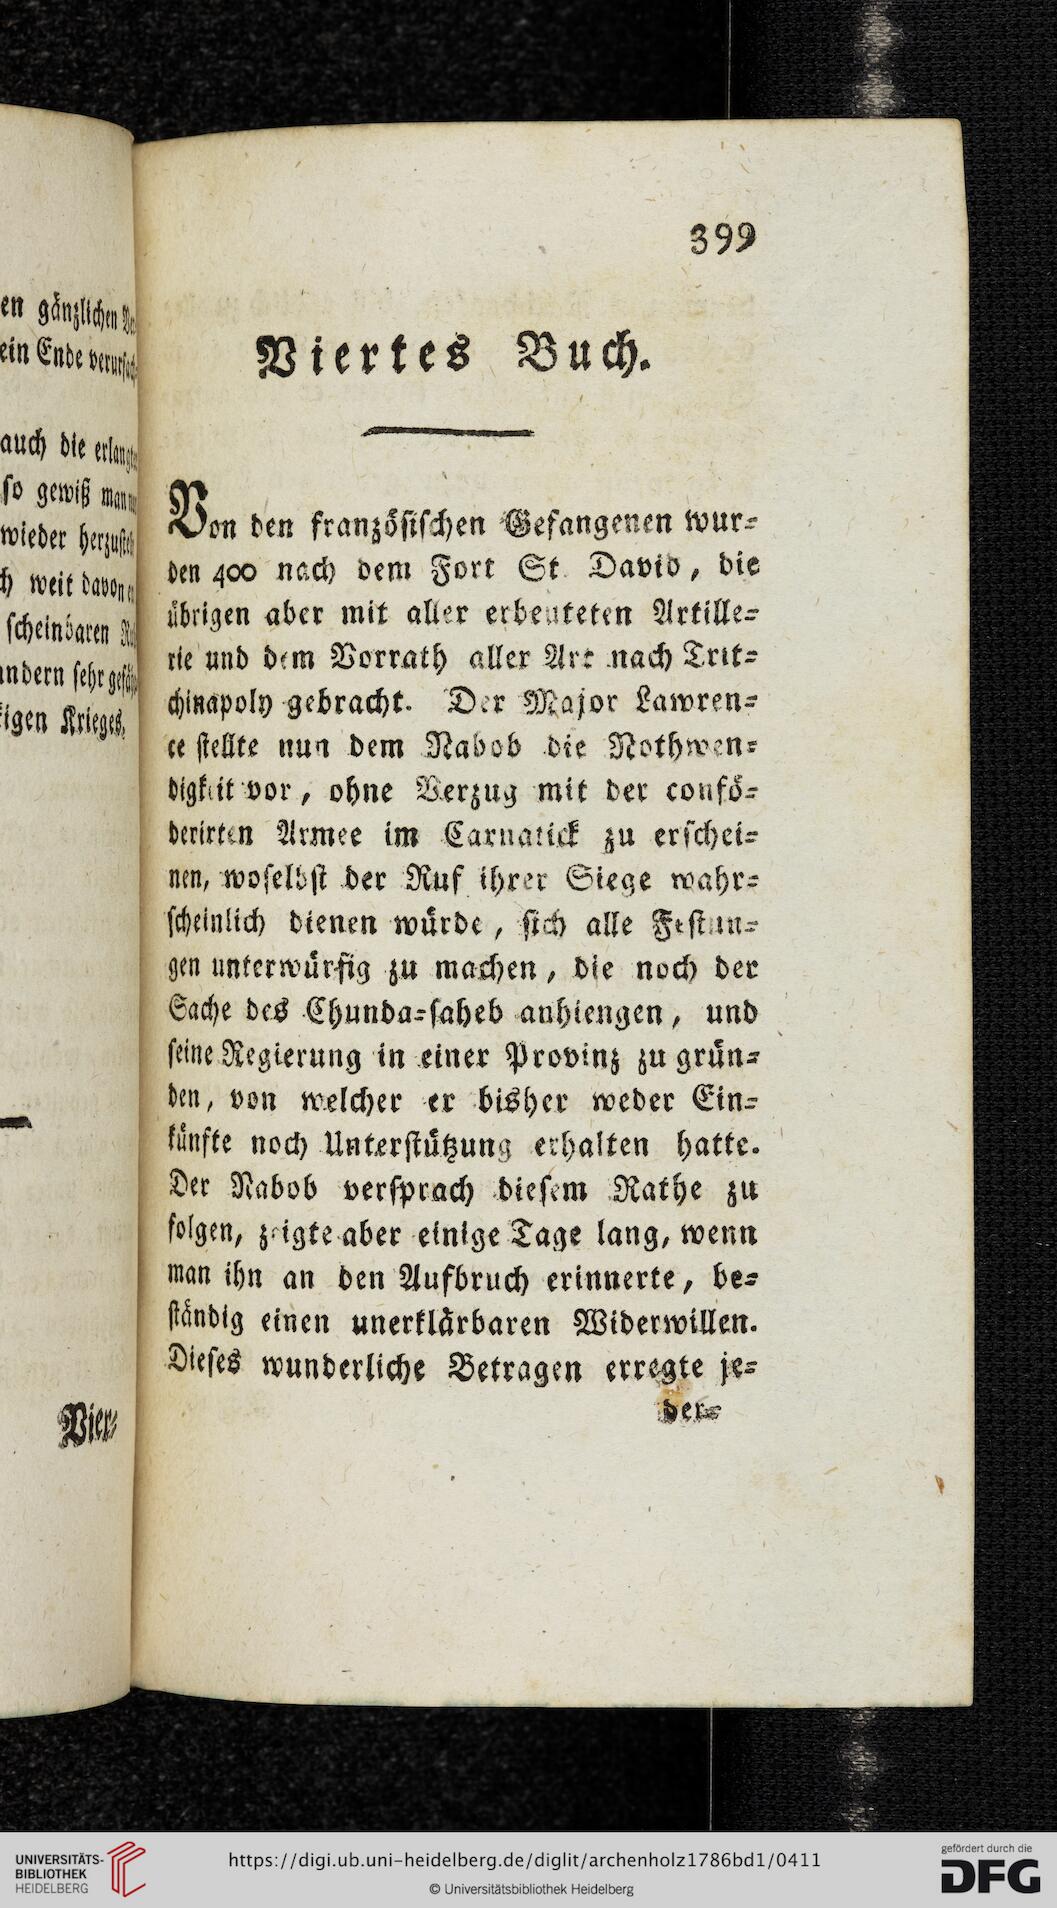 en gänzlichen
ein Ende
auch die
so gewiß
wieder
weit davon
scheinbaren
andern sehr
igen Krieges,
Vier-
399
Viertes Buch.
Von den französischen Gefangenen wur-
den 400 nach dem Fort St. David, die
übrigen aber mit aller erbeuteten Artille-
rie und dem Vorrath aller Art nach Trit-
chinapoly gebracht. Der Major Lawren-
ce stellte nun dem Nabob die Nothwen-
digkeit vor, ohne Verzug mit der confö-
derirten Armee im Carnatick zu erschei-
nen, woselbst der Ruf ihrer Siege wahr-
scheinlich dienen würde, sich alle Festun-
gen unterwürfig zu machen, die noch der
Sache des Chunda-saheb anhiengen, und
seine Regierung in einer Provinz zu grün-
den, von welcher er bisher weder Ein-
künfte noch Unterstützung erhalten hatte.
Der Nabob versprach diesem Rathe zu
folgen, zeigte aber einige Tage lang, wenn
man ihn an den Aufbruch erinnerte, be-
ständig einen unerklärbaren Widerwillen.
Dieses wunderliche Betragen erregte je-
der-
UNIVERSITÄTS-
BIBLIOTHEK
HEIDELBERG
https://digi.ub.uni-heidelberg.de/diglit/archenholz1786bd1/0411
© Universitätsbibliothek Heidelberg
gefördert durch die
DFG